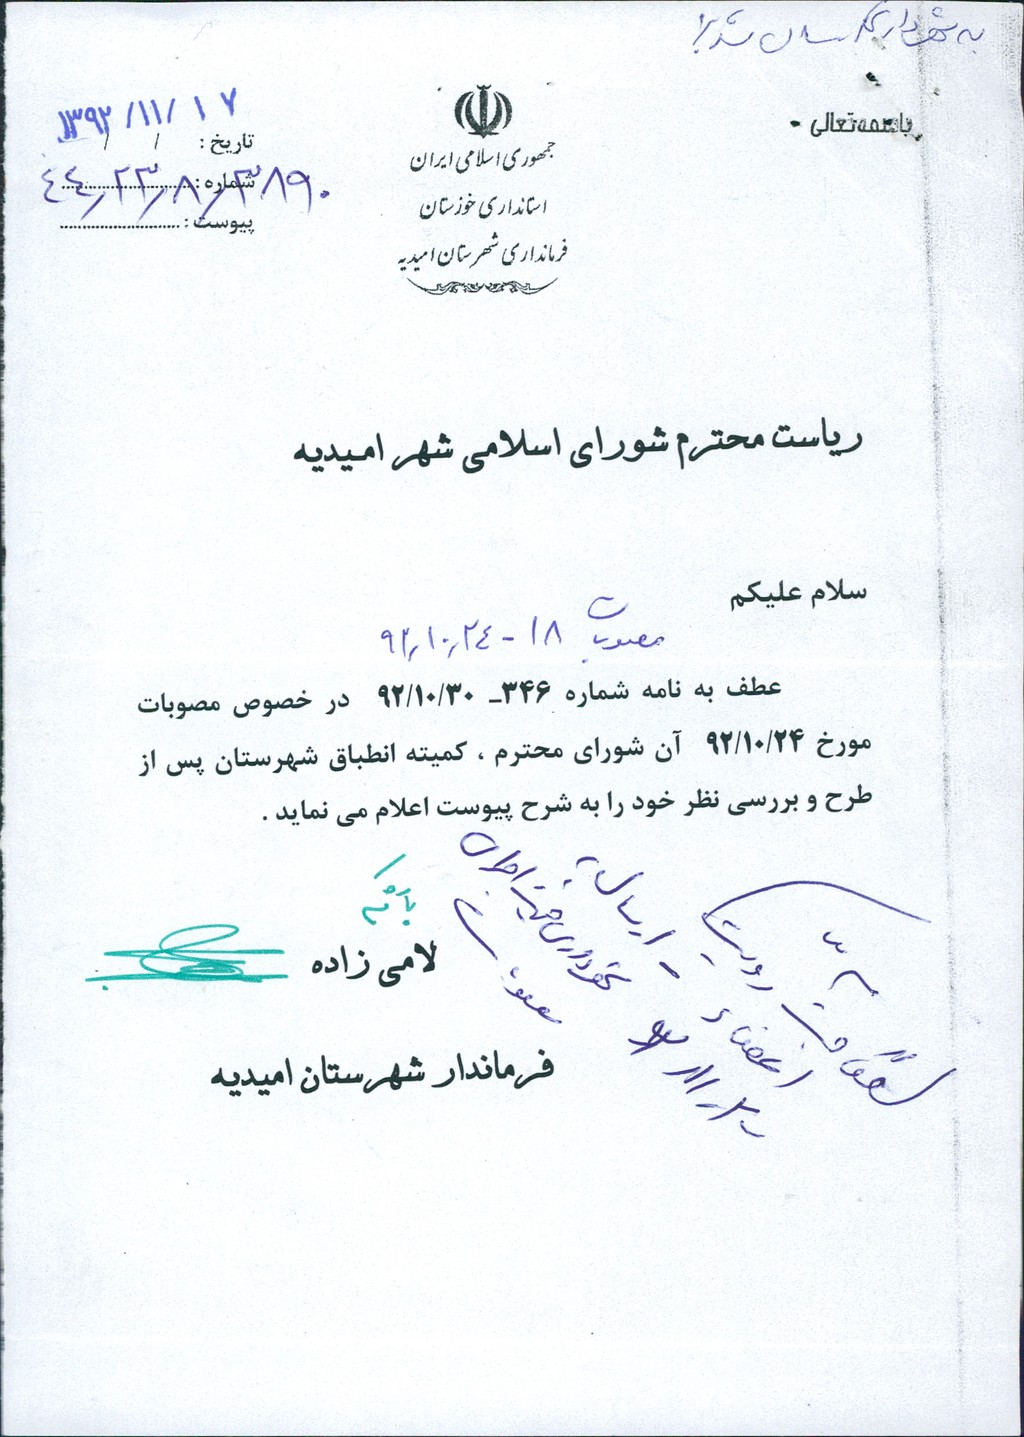 به شهرداری ارسال شد
باسمه تعالی
جمهوری اسلامی ایران
استانداری خوزستان
فرمانداری شهرستان امیدیه
تاریخ : ۱۳۹۲/۱۱/۱۷
شماره : ۴۴/۲۳/۸/۳۸۹۰
پیوست :
ریاست محترم شورای اسلامی شهر امیدیه
سلام علیکم
مصوبات ۱۸ - ۹۲/۱۰/۲۴
عطف به نامه شماره ۳۴۶ـ ۹۲/۱۰/۳۰ در خصوص مصوبات
مورخ ۹۲/۱۰/۲۴ آن شورای محترم ، کمیته انطباق شهرستان پس از
طرح و بررسی نظر خود را به شرح پیوست اعلام می نماید .
لامی زاده
فرماندار شهرستان امیدیه
جهت رویت
اعضاء - ارسال به
شهرداری جهت اجرای